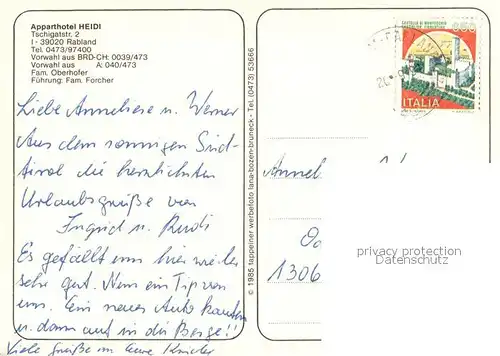 Apparthotel HEIDI
Tschigatstr. 2
I - 39020 Rabland
Tel. 0473/97400
Vorwahl aus BRD-CH: 0039/473
Vorwahl aus A: 040/473
Fam. Oberhofer
Führung: Fam. Forcher
Liebe Anneliese u. Werner
Aus dem sonnigen Süd-
tirol die herzlichsten
Urlaubsgrüße von
Ingrid u. Rudi
Es gefällt uns hier wieder
sehr gut. Nun ein Tip von
uns. Ein neues Auto kaufen
u. dann auf in die Berge!!
Viele Grüße an
© 1985 tappeiner werbefoto lana-bozen-bruneck - Tel. (0473) 53666
650
ITALIA
Annel
1306
privacy protection
Datenschutz